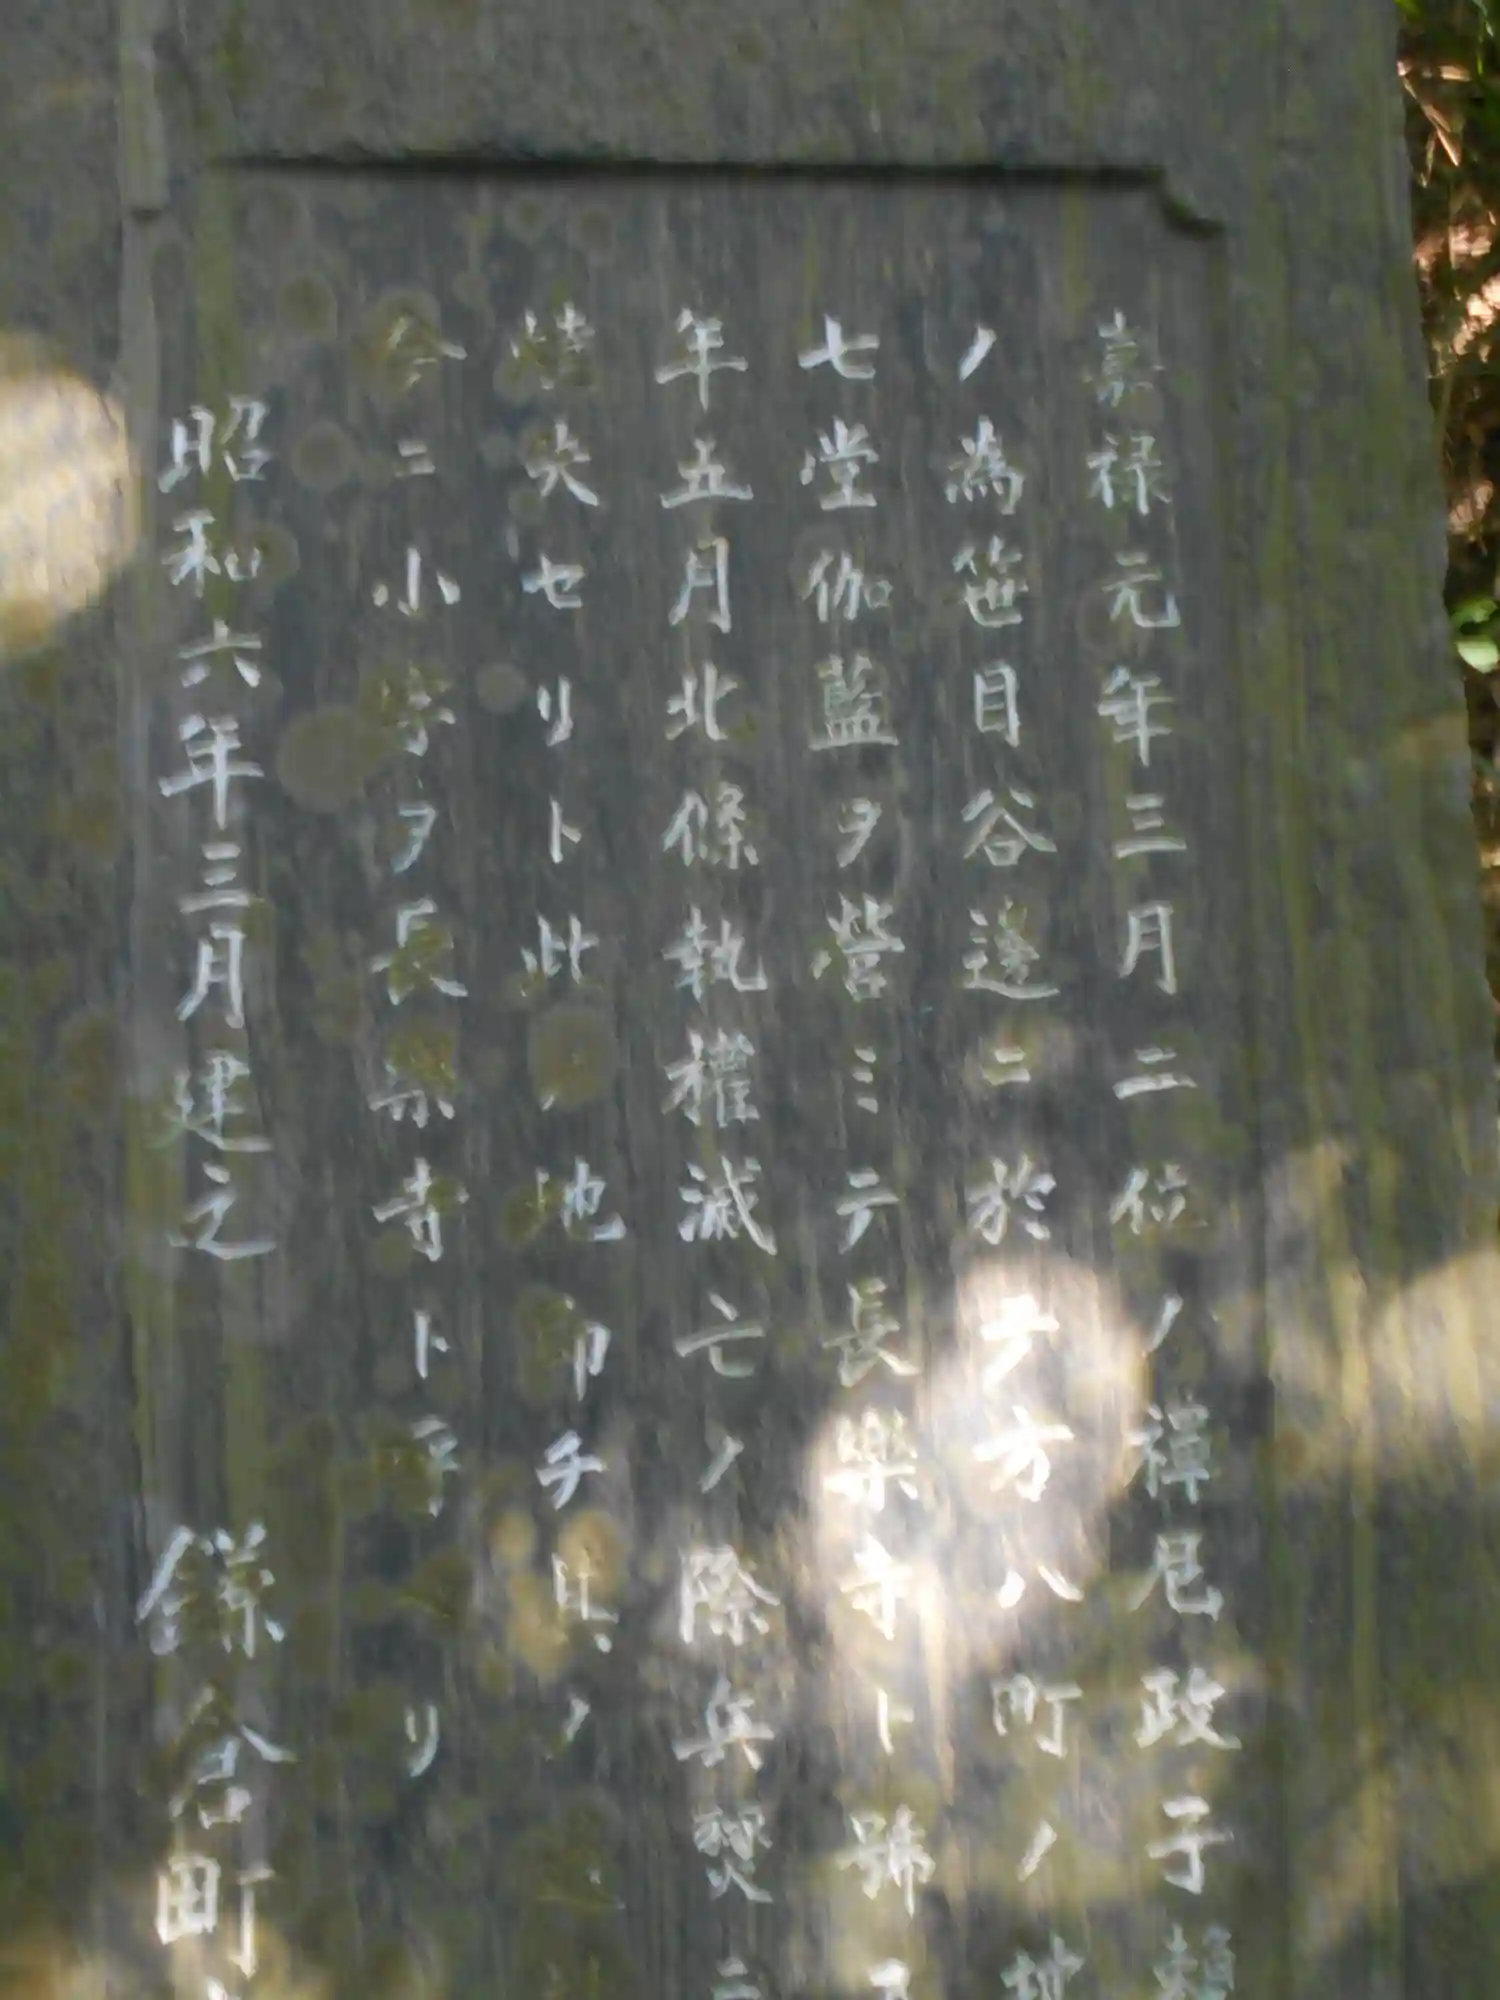 嘉禄元年三月二位ノ禅尼政子頼
ノ為笹目谷邊ニ於テ方八町ノ地
七堂伽藍ヲ營ミテ長樂寺ト號
年五月北條執權滅亡ノ際兵燹ニ
燒失セリト此ノ地即チ其ノ
今ニ小字ヲ長樂寺ト云ヘリ
昭和六年三月建之 鎌倉町